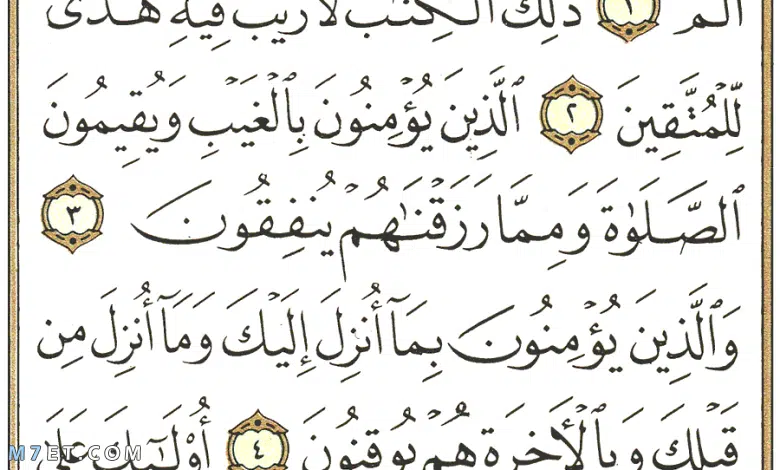 الٓمٓ ١ ذَٰلِكَ ٱلْكِتَٰبُ لَا رَيْبَ فِيهِ هُدًى
لِّلْمُتَّقِينَ ٢ ٱلَّذِينَ يُؤْمِنُونَ بِٱلْغَيْبِ وَيُقِيمُونَ
ٱلصَّلَوٰةَ وَمِمَّا رَزَقْنَٰهُمْ يُنفِقُونَ ٣
وَٱلَّذِينَ يُؤْمِنُونَ بِمَآ أُنزِلَ إِلَيْكَ وَمَآ أُنزِلَ مِن
قَبْلِكَ وَبِٱلْأَخِرَةِ هُمْ يُوقِنُونَ ٤ أُو۟لَٰٓئِكَ عَلَىٰ
M7ET.COM